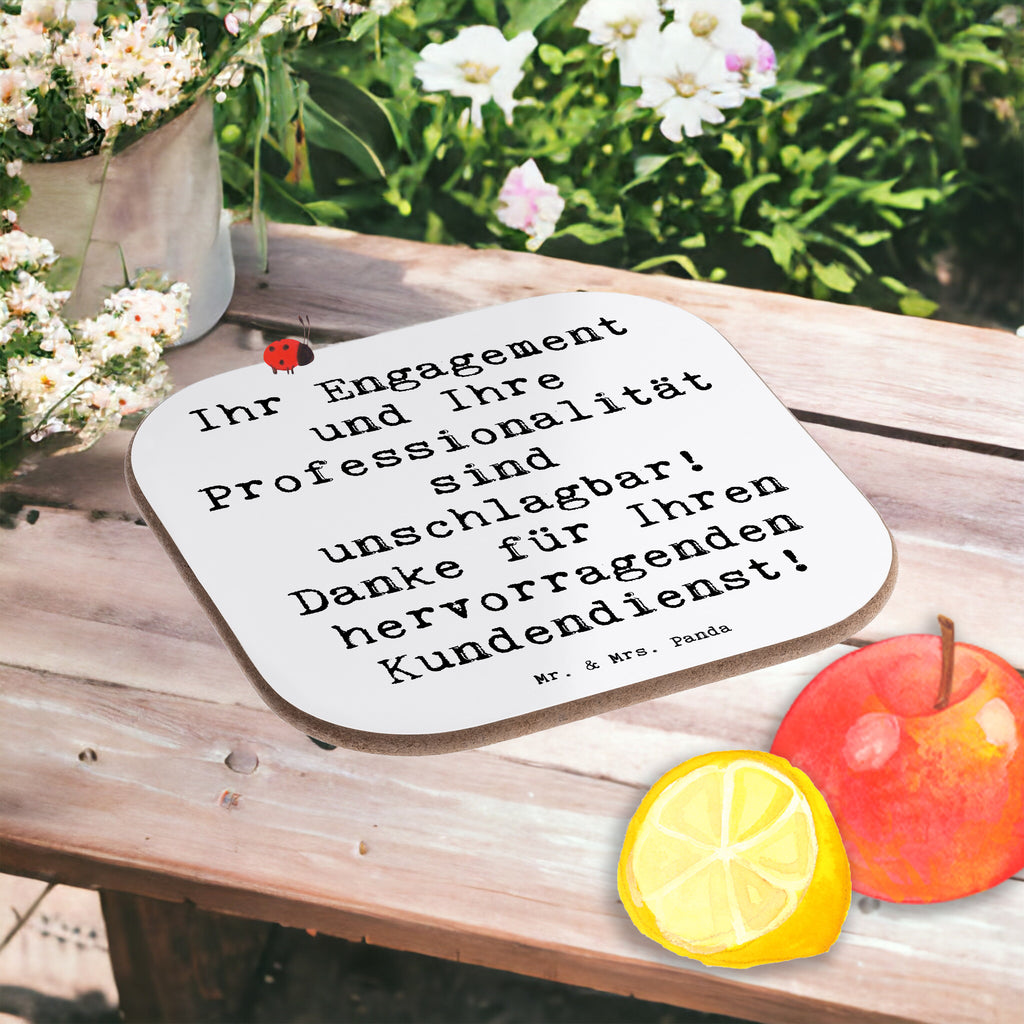 Ihr Engagement
und Ihre
Professionalität
sind
unschlagbar!
Danke für Ihren
hervorragenden
Kundendienst!
Mr. & Mrs. Panda